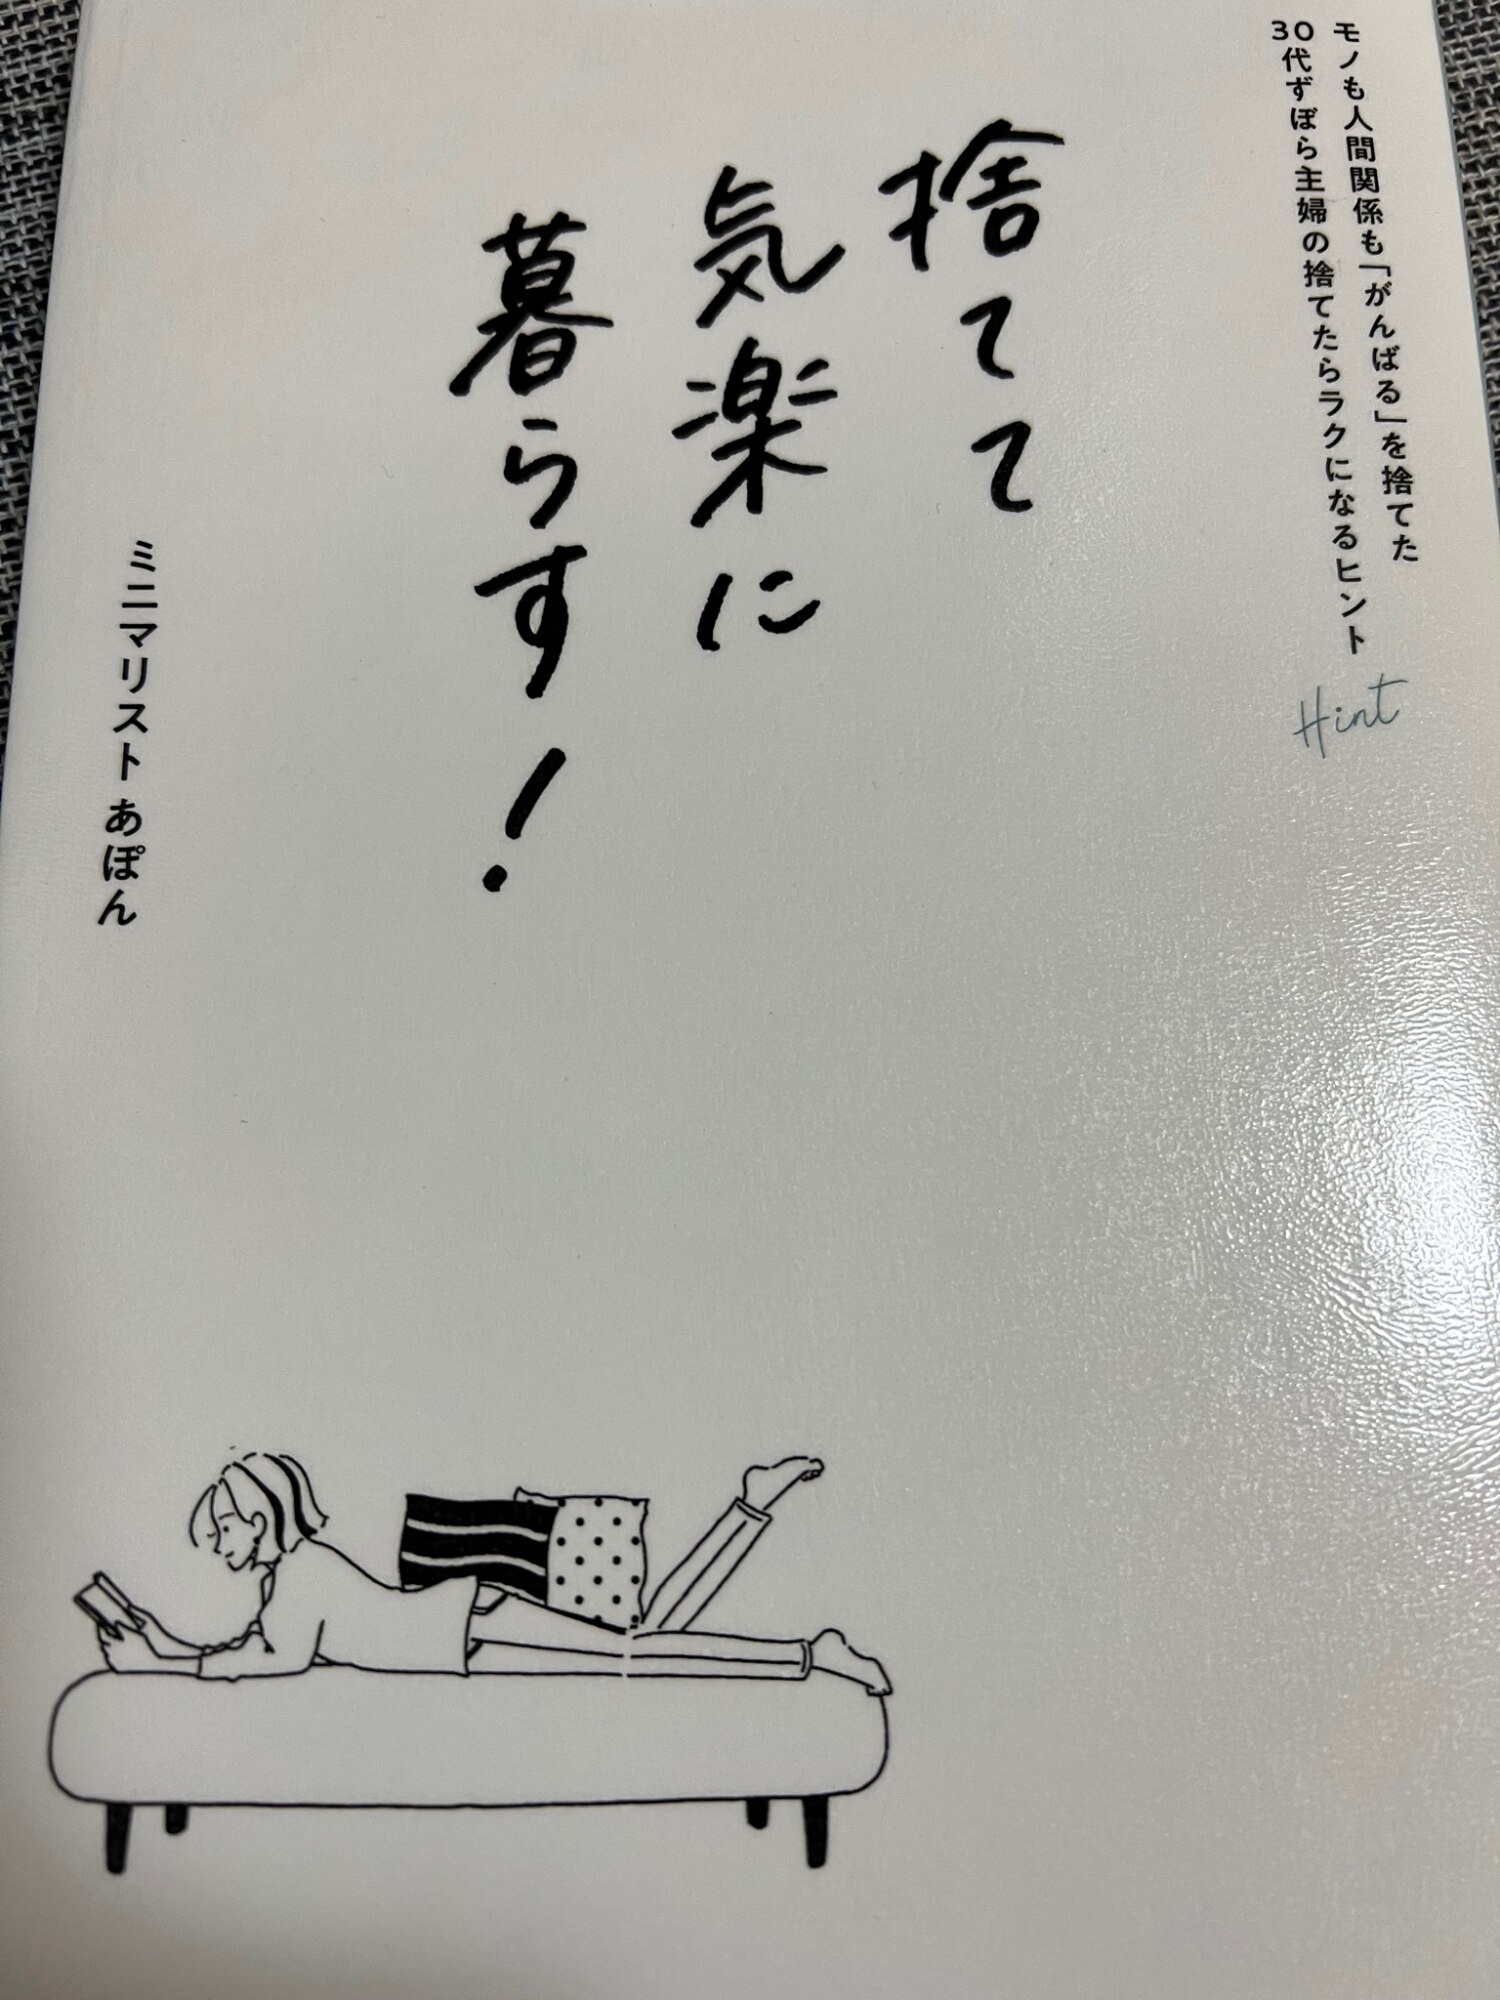 モノも人間関係も「がんばる」を捨てた
30代ずぼら主婦の捨てたらラクになるヒント
Hint
捨てて
気楽に
暮らす！
ミニマリストあぽん